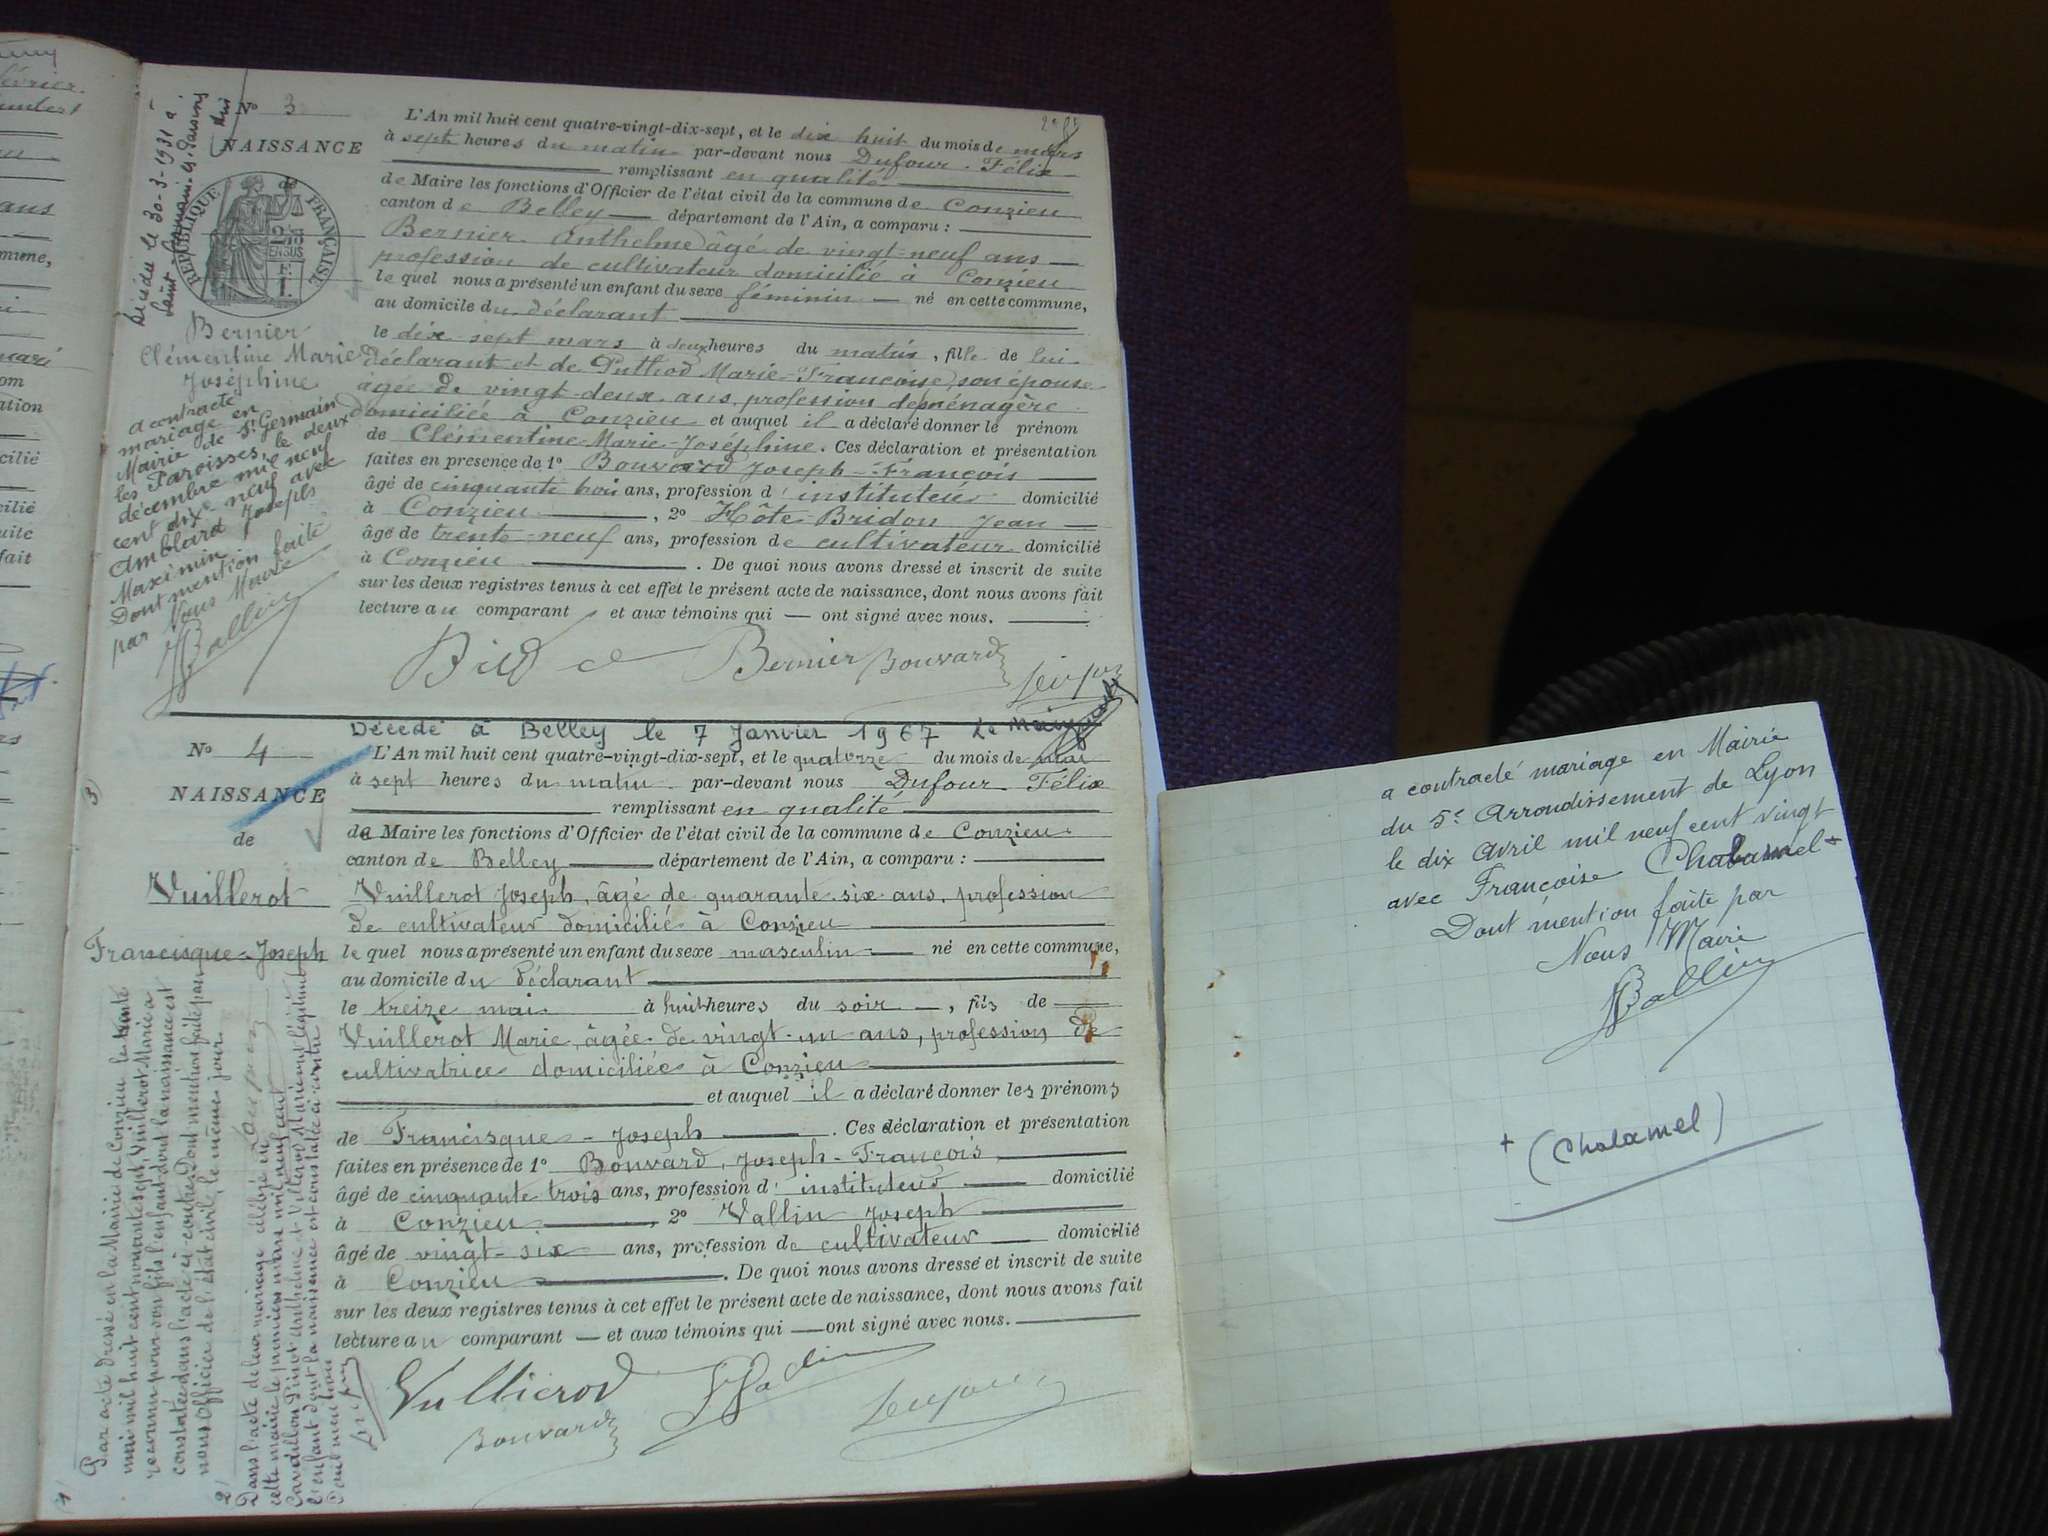 N° 3
NAISSANCE
de
RÉPUBLIQUE FRANÇAISE
Décédée le 30-3-1931 à
Saint Germain-les-Paroisses
Bernier
Clémentine Marie
Joséphine
a contracté
mariage en
Mairie de St Germain
les Paroisses, le deux
décembre mil neuf
cent dix-neuf avec
Amblard Joseph
Maximin
Dont mention faite
par Nous Maire
Ballin
L'An mil huit cent quatre-vingt-dix-sept, et le dix huit du mois de mars
à sept heures du matin par-devant nous Dufour Félix
remplissant en qualité
de Maire les fonctions d'Officier de l'état civil de la commune de Conzieu
canton de Belley département de l'Ain, a comparu :
Bernier Anthelme âgé de vingt-neuf ans
profession de cultivateur domicilié à Conzieu
le quel nous a présenté un enfant du sexe féminin né en cette commune,
au domicile du déclarant
le dix sept mars à deux heures du matin, fille de lui
déclarant et de Puthod Marie-Françoise, son épouse
âgée de vingt-deux ans, profession de ménagère
domiciliée à Conzieu et auquel il a déclaré donner le prénom
de Clémentine-Marie-Joséphine. Ces déclaration et présentation
faites en presence de 1° Bouvard Joseph-François
âgé de cinquante trois ans, profession d'instituteur domicilié
à Conzieu, 2° Hôte-Bridon Jean
âgé de trente-neuf ans, profession de cultivateur domicilié
à Conzieu. De quoi nous avons dressé et inscrit de suite
sur les deux registres tenus à cet effet le présent acte de naissance, dont nous avons fait
lecture au comparant et aux témoins qui ont signé avec nous.
Bernier Bouvard
Décédé à Belley le 7 Janvier 1967 Le Maire
N° 4
NAISSANCE
de
Vuillerot
Francisque-Joseph
L'An mil huit cent quatre-vingt-dix-sept, et le quatorze du mois de mai
à sept heures du matin par-devant nous Dufour Félix
remplissant en qualité
de Maire les fonctions d'Officier de l'état civil de la commune de Conzieu
canton de Belley département de l'Ain, a comparu :
Vuillerot Joseph, âgé de quarante-six ans, profession
de cultivateur domicilié à Conzieu
le quel nous a présenté un enfant du sexe masculin né en cette commune,
au domicile du Déclarant
le treize mai à huit heures du soir, fils de
Vuillerot Marie, âgée de vingt-un ans, profession de
cultivatrice domiciliée à Conzieu
et auquel il a déclaré donner les prénoms
de Francisque-Joseph. Ces déclaration et présentation
faites en présence de 1° Bouvard, Joseph-François
âgé de cinquante trois ans, profession d'instituteur domicilié
à Conzieu, 2° Vallin Joseph
âgé de vingt-six ans, profession de cultivateur domicilié
à Conzieu. De quoi nous avons dressé et inscrit de suite
sur les deux registres tenus à cet effet le présent acte de naissance, dont nous avons fait
lecture au comparant et aux témoins qui ont signé avec nous.
Vullierod
Bouvard
1/ Par acte dressé en la Mairie de Conzieu le trente
mai mil huit cent nonante sept, Vuillerot Marie a
reconnu pour son fils l'enfant dont la naissance est
constatée dans l'acte ci-contre. Dont mention faite par
nous Officier de l'état civil, le même jour.
2/ Dans l'acte de leur mariage célébré en
cette mairie le premier mars mil neuf cent
l'enfant dont la naissance est constatée ci-contre
a contracté mariage en Mairie
du 5e Arrondissement de Lyon
le dix avril mil neuf cent vingt
avec Françoise Chalamel +
Dont mention faite par
Nous Maire
Ballin
+ (Chalamel)